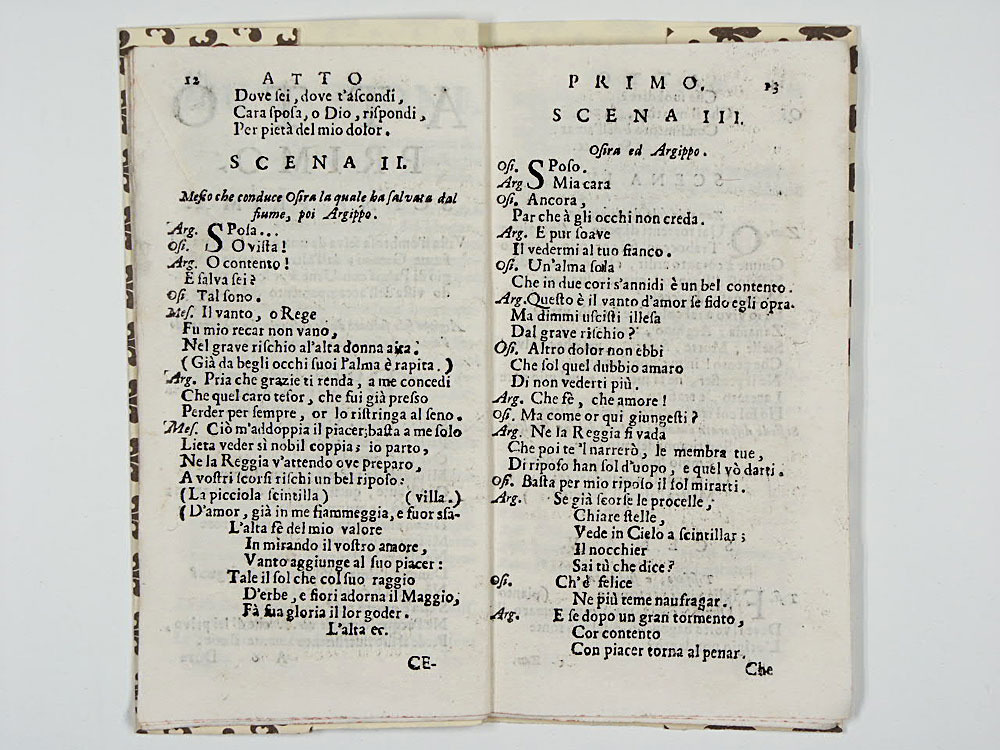 12 ATTO
Dove sei, dove t'ascondi,
Cara sposa, o Dio, rispondi,
Per pietà del mio dolor.
SCENA II.
Mesio che conduce Osira la quale ha salvata dal
fiume, poi Argippo.
Arg. SPosa...
Osi. O vista!
Arg. O contento!
E salva sei?
Osi Tal sono.
Mes. Il vanto, o Rege
Fu mio recar non vano,
Nel grave rischio al'alta donna aita.
(Già da begli occhi suoi l'alma è rapita.)
Arg. Pria che grazie ti renda, a me concedi
Che quel caro tesor, che fui già presso
Perder per sempre, or lo ristringa al seno.
Mes. Ciò m'addoppia il piacer; basta a me solo
Lieta veder sì nobil coppia; io parto,
Ne la Reggia v'attendo ove preparo,
A vostri scorsi rischi un bel riposo:
(La picciola scintilla) (villa.)
(D'amor, già in me fiammeggia, e fuor sfa-
L'alta fè del mio valore
In mirando il vostro amore,
Vanto aggiunge al suo piacer:
Tale il sol che col suo raggio
D'erbe, e fiori adorna il Maggio,
Fà sua gloria il lor goder.
L'alta ec.
CE-
PRIMO. 13
SCENA III.
Osira ed Argippo.
Osi. SPoso.
Arg Mia cara
Osi. Ancora,
Par che à gli occhi non creda.
Arg. E pur soave
Il vedermi al tuo fianco.
Osi. Un'alma sola
Che in due cori s'annidi è un bel contento.
Arg. Questo è il vanto d'amor se fido egli opra.
Ma dimmi uscisti illesa
Dal grave rischio?
Osi. Altro dolor non ebbi
Che sol quel dubbio amaro
Di non vederti più.
Arg. Che fè, che amore!
Osi. Ma come or qui giungesti?
Arg. Ne la Reggia si vada
Che poi te'l narrerò, le membra tue,
Di riposo han sol d'uopo, e quel vò darti.
Osi. Basta per mio riposo il sol mirarti.
Arg. Se già scorse le procelle,
Chiare stelle,
Vede in Cielo a scintillar;
Il nocchier
Sai tù che dice?
Osi. Ch'è felice
Ne più teme naufragar.
Arg. E se dopo un gran tormento,
Cor contento
Con piacer torna al penar.
Che